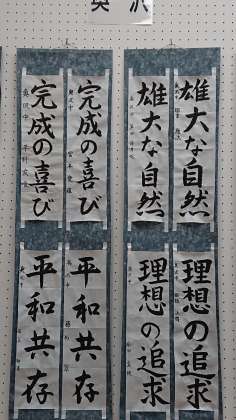 雄大な自然
雄大な自然
完成の喜び
完成の喜び
理想の追求
理想の追求
平和共存
平和共存